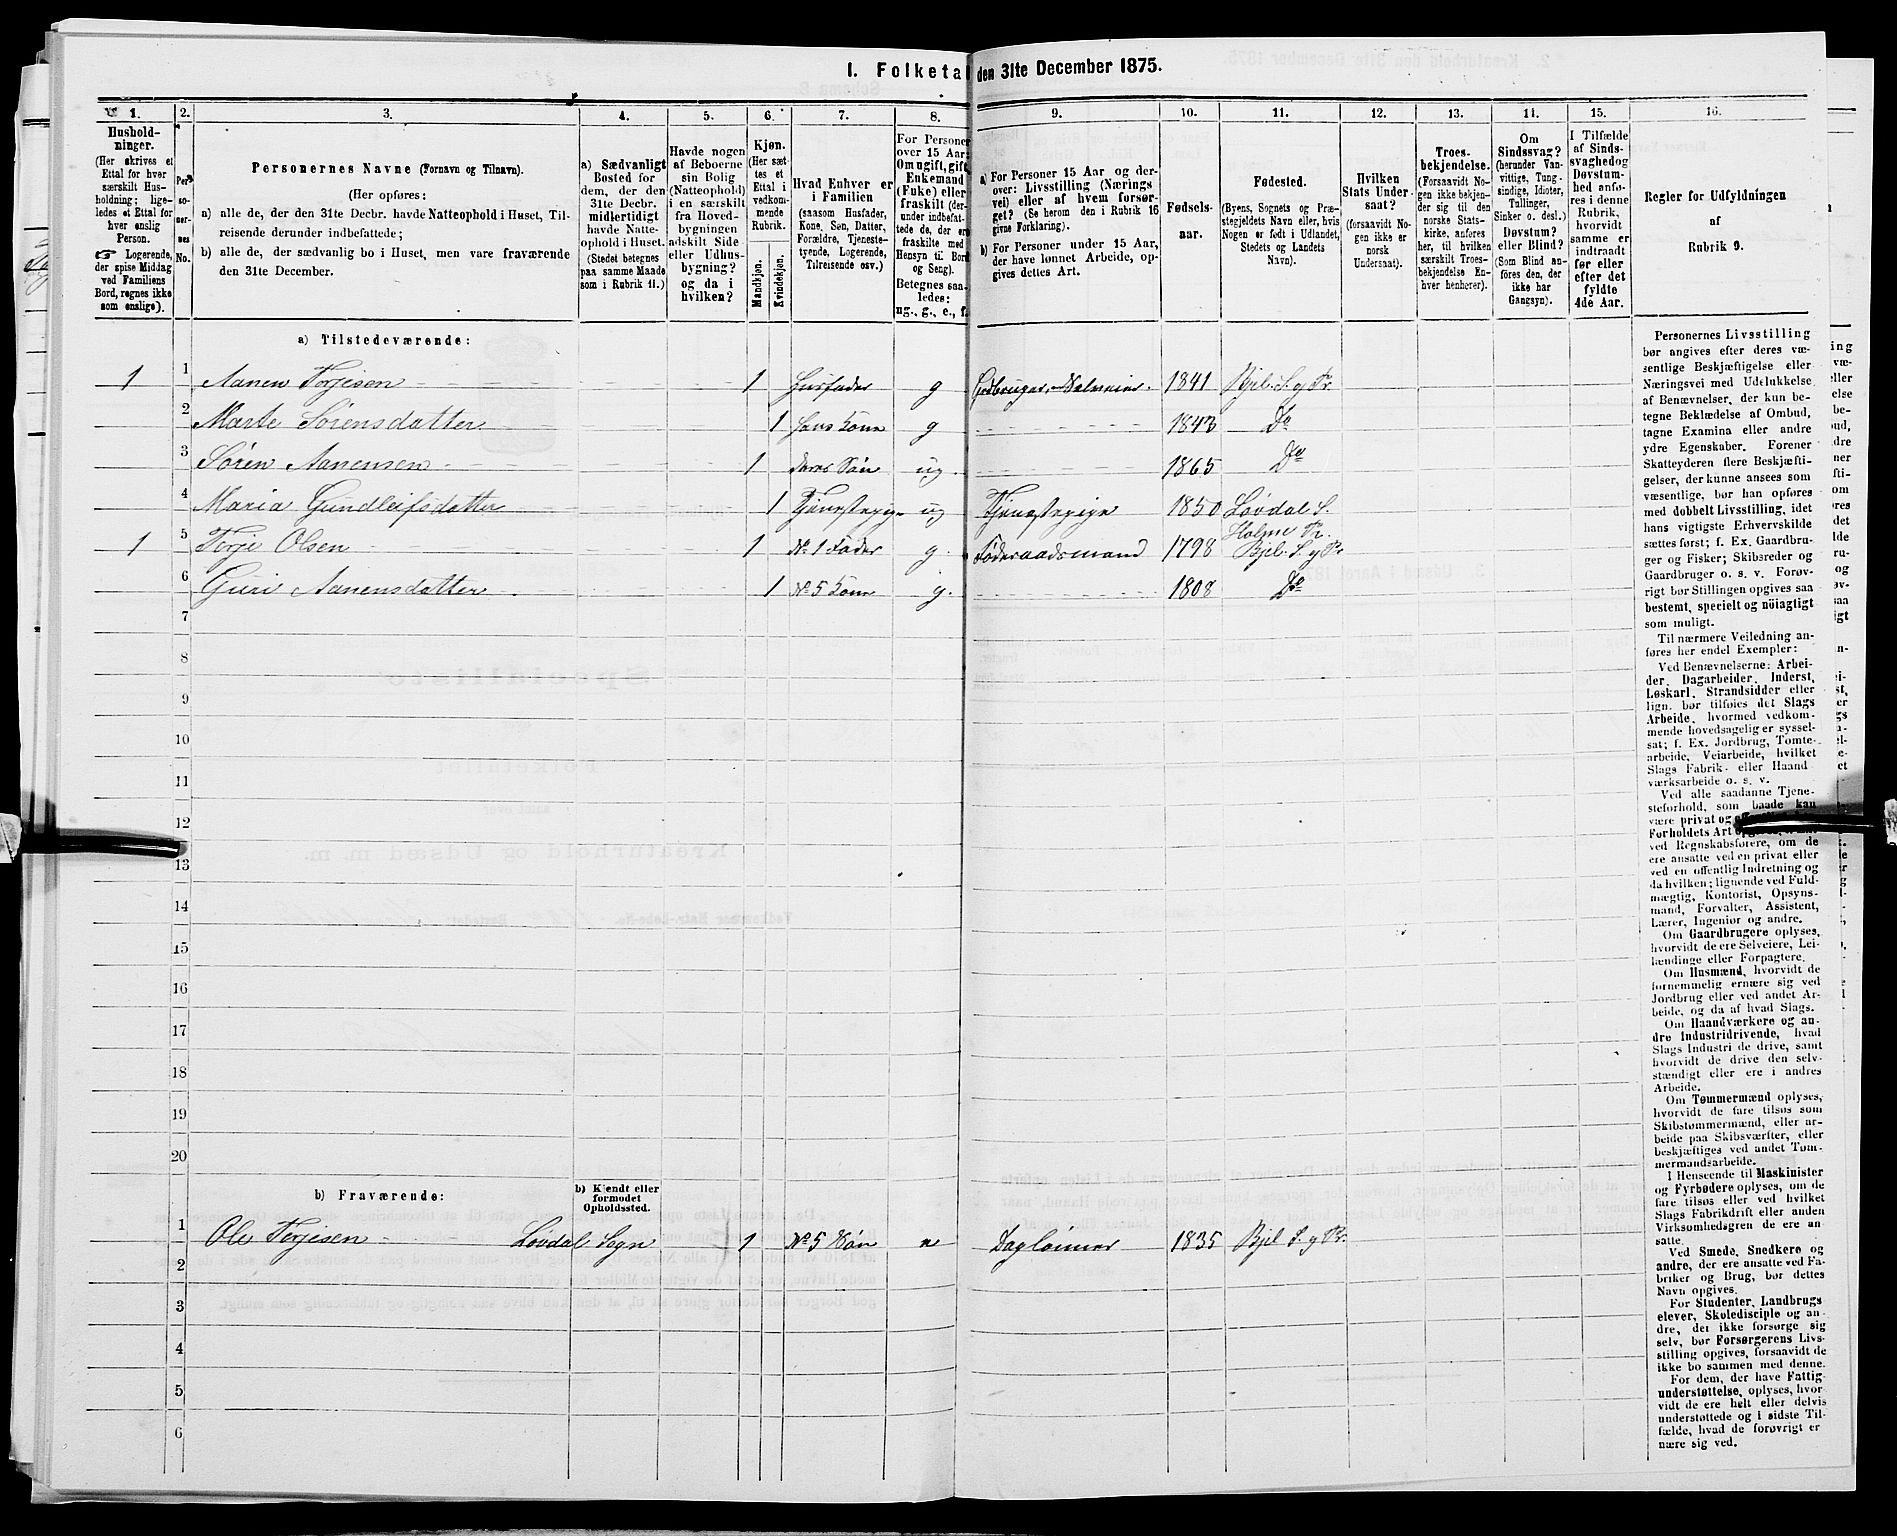 I. Folketal den 31te December 1875.
1. 2. 3. 4. 5. 6. 7. 8. 9. 10. 11. 12. 13. 14. 15. 16.
Hushold-
ninger.
(Her skrives et
Ettal for hver
særskilt Hus-
holdning; lige-
ledes et Ettal for
hver enslig
Person.
☞ Logerende,
der spise Middag
ved Familiens
Bord, regnes ikke
som enslige).
Per-
so-
ner-
nes
No.
Personernes Navne (Fornavn og Tilnavn).
(Her opføres:
a) alle de, der den 31te Decbr. havde Natteophold i Huset, Til-
reisende derunder indbefattede;
b) alle de, der sædvanlig bo i Huset, men vare fraværende
den 31te December.
a) Sædvanligt
Bosted for
dem, der den
31te Decbr.
midlertidigt
havde Natte-
ophold i Huset.
(Stedet betegnes
paa samme Maade
som i Rubrik 11.)
Havde nogen
af Beboerne
sin Bolig
(Natteophold)
i en særskilt
fra Hoved-
bygningen
adskilt Side-
eller Udhus-
bygning?
og da i
hvilken?
Kjøn.
(Her sæt-
tes et
Ettal i
vedkom-
mende
Rubrik.
Mandkjøn.
Kvindekjøn.
Hvad Enhver er
i Familien
(saasom Husfader,
Kone, Søn, Datter,
Forældre, Tjeneste-
tyende, Logerende,
Tilreisende osv.)
For Personer
over 15 Aar:
Om ugift, gift,
Enkemand
(Enke) eller
fraskilt (der-
under indbefat-
tede de, der ere
fraskilte med
Hensyn til Bord
og Seng).
Betegnes saa-
ledes:
ug., g., e., f.
a) For Personer 15 Aar og der-
over: Livsstilling (Nærings
vei) eller af hvem forsør-
get? (Se herom den i Rubrik 16
givne Forklaring).
b) For Personer under 15 Aar,
der have lønnet Arbeide, op-
gives dettes Art.
Fødsels-
aar.
Fødested.
(Byens, Sognets og Præ-
stegjeldets Navn eller, hvis
Nogen er født i Udlandet,
Stedets og Landets
Navn).
Hvilken
Stats Under-
saat?
(forsaavidt No-
gen ikke er
norsk
Undersaat).
Troes-
bekjendelse.
(Forsaavidt No-
gen ikke bekjen-
der sig til den
norske Stats-
kirke, anføres
her, til hvilken
særskilt Troes-
bekjendelse En-
hver henhører).
Om
Sindssvag?
(herunder Van-
vittige, Tung-
sindige, Idioter,
Tullinger,
Sinker o. desl.)
Døvstum?
eller Blind?
(Som Blind an-
føres den, der
ikke har
Gangsyn).
I Tilfælde
af Sinds-
svaghed og
Døvstum-
hed anfø-
res i denne
Rubrik,
hvorvidt
samme er
indtraadt
før eller
efter det
fyldte
4de Aar.
Regler for Udfyldningen
af
Rubrik 9.
a) Tilstedeværende:
1 1 Aanen Torjesen 1 Husfader g Gdbruger, Selveier. 1841 Bjel. S. og Pr.
2 Marte Sørensdatter 1 Hans Kone g 1843 Do
3 Søren Aanensen 1 deres Søn ug. 1865 Do
4 Maria Gundleifsdatter 1 Tjenestepige ug Tjenestepige 1850 Løvdal S.
Holme Pr.
1 5 Terje Olsen 1 No. 1 Fader g. Føderaadsmand 1798 Bjel. S. og Pr
6 Guri Aanensdatter 1 No. 5 Kone g. 1808 Do
7
8
9
10
11
12
13
14
15
16
17
18
19
20
b) Fraværende:
b) Kjendt eller
formodet
Opholdssted.
1 Ole Torjesen Løvdal Sogn 1 No. 5 Søn Dagleiner 1835 Bjel S. og Pr.
2
3
4
5
6
Personernes Livsstilling
bør angives efter deres væ-
sentlige Beskjæftigelse eller
Næringsvei med Udelukkelse
af Benævnelser, der kun be-
tegne Beklædelse af Ombud,
tagne Examina eller andre
ydre Egenskaber. Forener
Skatteyderen flere Beskjæfti-
gelser, der kunne ansees som
væsentlige, bør han opføres
med dobbelt Livsstilling, idet
hans vigtigste Erhvervskilde
sættes først; f. Ex. Gaardbru-
ger og Fisker; Skibsreder og
Gaardbruger o. s. v. Forøv-
rigt bør Stillingen opgives saa
bestemt, specielt og nøiagtigt
som muligt.
Til nærmere Veiledning an-
føres her endel Exempler:
Ved Benævnelserne: Arbei-
der, Dagarbeider, Inderst,
Løskarl, Strandsidder eller
lign. bør tilføies det Slags
Arbeide, hvormed vedkom-
mende hovedsagelig er syssel-
sat; f. Ex. Jordbrug, Tomte-
arbeide, Veiarbeide, hvilket
Slags Fabrik- eller Haand
værksarbeide o. s. v.
Ved alle saadanne Tjene-
steforhold, som baade kan
være privat og
Forholdets Art
ved Regnskabsførere, om de
ere ansatte ved en privat eller
ved en offentlig Indretning og
da hvilken; lignende ved Fuld-
mægtig, Kontorist, Opsyns-
mand, Forvalter, Assistent,
Lærer, Ingeniør og andre.
Om Gaardbrugere oplyses,
hvorvidt de ere Selveiere, Lei-
lændinge eller Forpagtere.
Om Husmænd, hvorvidt de
fornemmelig ernære sig ved
Jordbrug eller ved andet Ar-
beide, og da af hvad Slags.
Om Haandværkere og an-
dre Industridrivende, hvad
Slags Industri de drive, samt
hvorvidt de drive den selv-
stændigt eller ere i andres
Arbeide.
Om Tømmermænd oplyses,
hvorvidt de fare tilsøs som
Skibstømmermænd, eller ar-
beide paa Skibsværfter, eller
beskjæftiges ved andet Tøm-
mermandsarbeide.
I Henseende til Maskinister
og Fyrbødere oplyses, om de
fare tilsøs eller ved hvilket
Slags Fabrikdrift eller anden
Virksomhedsgren de ere an-
satte.
Ved Smede, Snedkere og
andre, der ere ansatte ved Fa-
briker og Brug, bør dettes
Navn opgives.
For Studenter, Landbrugs
elever, Skoledisciple og an-
dre, der ikke forsørge sig
selv, bør Forsørgerens Livs-
stilling opgives, forsaavidt de
ikke bo sammen med denne.
For dem, der have Fattig-
understøttelse, oplyses, hvor-
vidt de ere helt eller delvis
understøttede og i sidste Til-
fælde, hvad de forøvrigt er
nære sig ved.